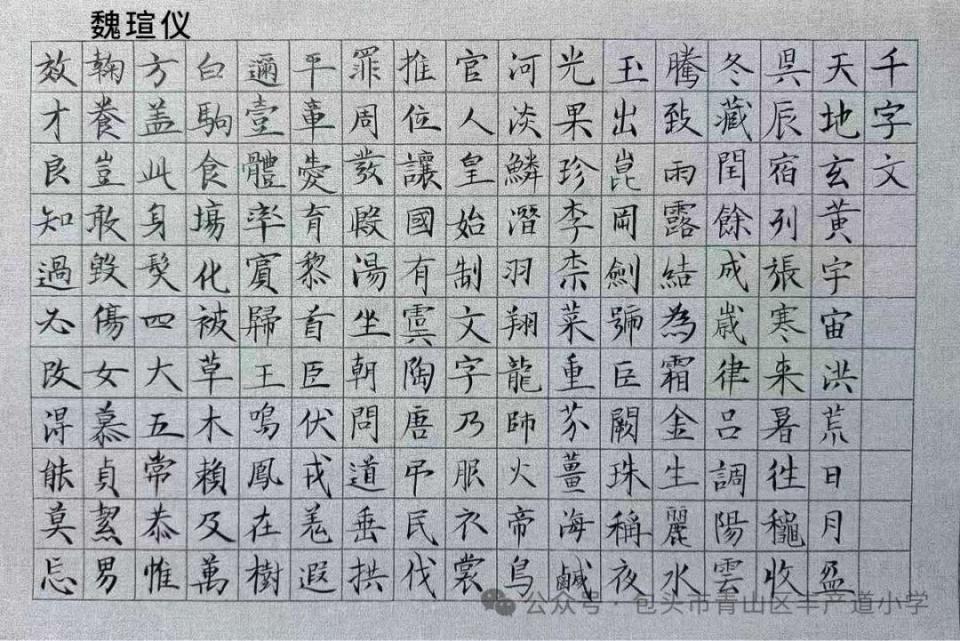 魏瑄仪
千字文
天地玄黄宇宙洪荒日月盈
昃辰宿列張寒来暑往穐收
冬藏閏餘成歲律吕調陽雲
騰致雨露結為霜金生麗水
玉出崑岡劍號巨闕珠稱夜
光果珍李柰菜重芥薑海鹹
河淡鱗潛羽翔龍師火帝鳥
官人皇始制文字乃服衣裳
推位讓國有虞陶唐弔民伐
罪周發殷湯坐朝問道垂拱
平章愛育黎首臣伏戎羌遐
邇壹體率賓歸王鳴鳳在樹
白駒食場化被草木賴及萬
方盖此身髮四大五常恭惟
鞠養豈敢毀傷女慕貞絜男
效才良知過必改得能莫忘
公众号 · 包头市青山区丰产道小学